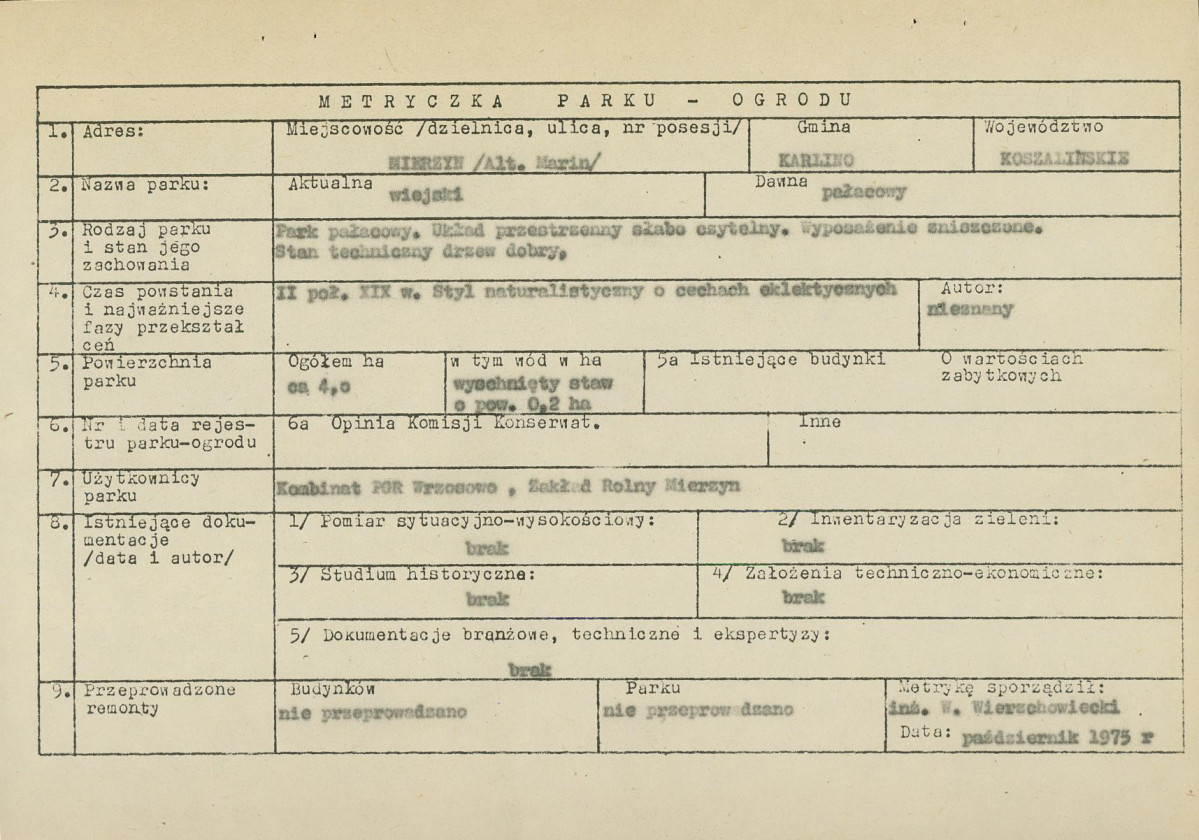 METRYCZKA PARKU - OGRODU
1. Adres: Miejscowość /dzielnica, ulica, nr posesji/ Gmina Województwo
MIERZYN /Alt. Marin/ KARLINO KOSZALIŃSKIE
2. Nazwa parku: Aktualna Dawna
wiejski pałacowy
3. Rodzaj parku Park pałacowy. Układ przestrzenny słabo czytelny. Wyposażenie zniszczone.
i stan jego Stan techniczny drzew dobry,
zachowania
4. Czas powstania II poł. XIX w. Styl naturalistyczny o cechach eklektycznych Autor:
i najważniejsze nieznany
fazy przekształ
ceń
5. Powierzchnia Ogółem ha w tym wód w ha 5a Istniejące budynki O wartościach
parku ca 4,o wyschnięty staw zabytkowych
o pow. 0,2 ha
6. Nr i data rejes- 6a Opinia Komisji Konserwat. Inne
tru parku-ogrodu
7. Użytkownicy Kombinat PGR Wrzosowo , Zakład Rolny Mierzyn
parku
8. Istniejące doku- 1/ Pomiar sytuacyjno-wysokościowy: 2/ Inwentaryzacja zieleni:
mentacje brak brak
/data i autor/
3/ Studium historyczne: 4/ Założenia techniczno-ekonomiczne:
brak brak
5/ Dokumentacje branżowe, techniczne i ekspertyzy:
brak
9. Przeprowadzone Budynków Parku Metrykę sporządził:
remonty nie przeprowadzano nie przeprowadzano inż. W. Wierzchowiecki
Data: październik 1975 r